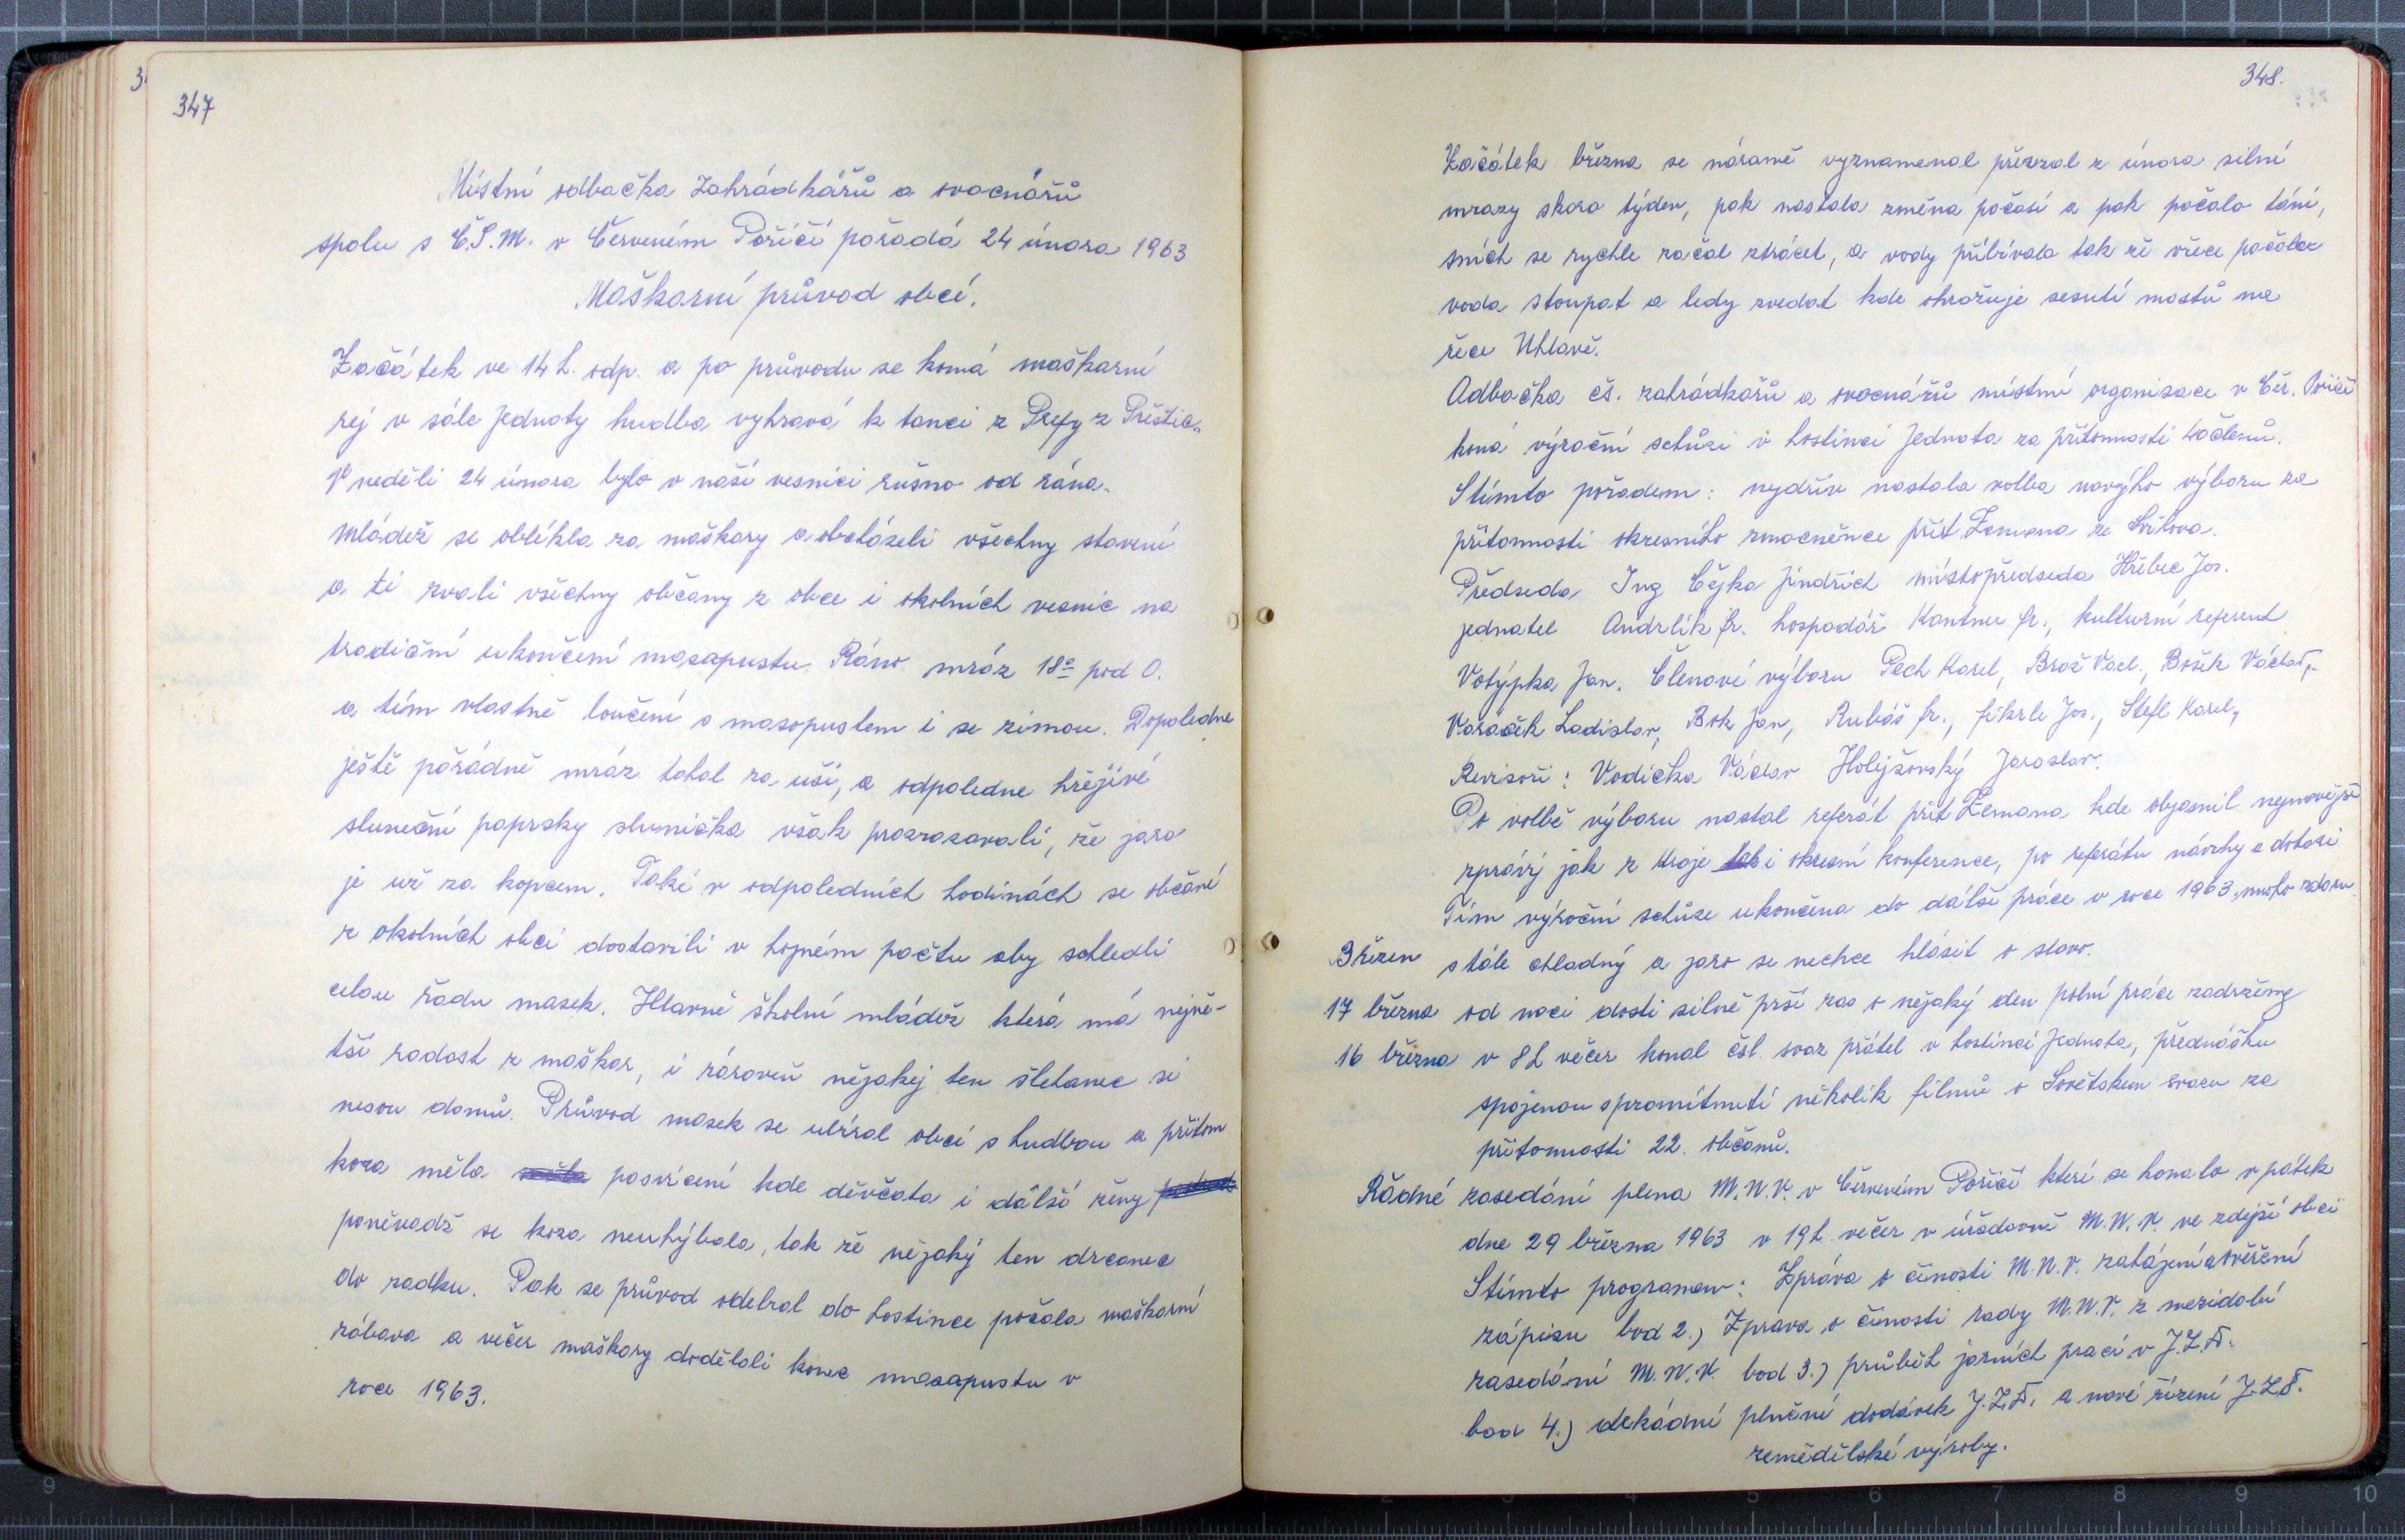 347
Místní odbačka zahrádkářů a ovocnářů
spolu s Č.S.M. v Červeném Poříčí pořadá 24 února 1963
Maškarní průvod obcí.
Začátek ve 14 h. odp. a po průvodu se koná maškarní
rej v sále Jednoty hudba vyhravá k tanci z Prefy z Přeštic.
V neděli 24 února bylo v naší vesnici rušno od rána.
Mládež se oblékla za maškary a obcházeli všechny stavení
a ti zvali všechny občany z obce i okolních vesnic na
tradiční ukončení masapustu. Ráno mráz 18° pod 0.
a tím vlastně loučení s masopustem i se zimou. Dopoledne
ještě pořádně mráz tahal za uši, a odpoledne hřejivé
sluneční paprsky slunička však prozrazovali, že jaro
je už za kopcem. Také v odpoledních hodinách se občané
z okolních obcí dostavili v hojném počtu aby schledli
celou řadu masek. Hlavně školní mládež která má nejvě-
tší radost z maškar, i zároveň nějakej ten šlehanec si
nesou domů. Průvod masek se ubíral obcí s hudbou a přitom
koza měla posvícení kde děvčata i dálší ženy
poněvadž se koza neuhýbala, tak že nějaký ten drcanec
do zadku. Pak se průvod odebral do hostince počala maškarní
zábava a večer maškary dodělali konec masapustu v
roce 1963.
348.
Začátek března se náramě vyznamenal převzal z února silní
mrazy skoro týden, pak nastala změna počasí a pak počalo tání,
sních se rychle začal ztrácet, a vody přibívalo tak že v řece počala
voda stoupat a ledy zvedat kde ohrožuje sesutí mostů na
řece Uhlavě.
Adbočka čs. zahrádkářů a ovocnářů místní organisace v Čer. Poříčí
koná výroční schůzi v hostinci Jednota za přítomnosti 40 členů.
Stímto pořadem: nydřív nastala volba novýho výboru za
přítomnosti okresního zmocněnce přít Zemana ze
Předseda Ing Čejka Jindřich místopředseda Hřebec Jos.
jednatel Andrlík fr. hospodář Kantner fr., kulturní referent
Votýpka Jan. Členové výboru Pech Karel, Brož Vacl., Bošek Václav,
Varaček Ladislav, Bok Jan, Rubáš fr., fikrle Jos., Štefl Karel,
Revisoři: Vodička Václav Holýšovský Jaroslav.
Po volbě výboru nastal referát přít Zemana kde objasnil nejnovější
zprávy jak z kraje tak i okresní konference, po referátu návrhy a dotazi
Tím výroční schůze ukončena do dálší práce v roce 1963 mnoho zdaru.
Březen stále chladný a jaro se nechce hlásit o slovo.
17 března od noci dosti silně prší zas o nějaký den polní práce zadrženy
16 března v 8h večer konal čsl. svaz přátel v hostinci Jednota, přednášku
spojenou spromítnutí několik filmů o Sovětskem svazu za
přítomnosti 22. občanů.
Řádné zasedání plena M.N.V. v Červeném Poříčí kteri se konalo v pátek
dne 29 března 1963 v 19h. večer v úřadovně M.N.V. ve zdejší obci
Stímto programem: Zpráva o činosti M.N.V. zahájení a ověření
zápisu bod 2.) Zprava o činosti rady M.N.V. z mezidobí
zasedání M.N.V. bod 3.) průběh jarních prací v J.Z.D.
bod 4.) dekádní plnění dodávek J.Z.D. a nové řízení J.Z.D.
zemědělské výroby.